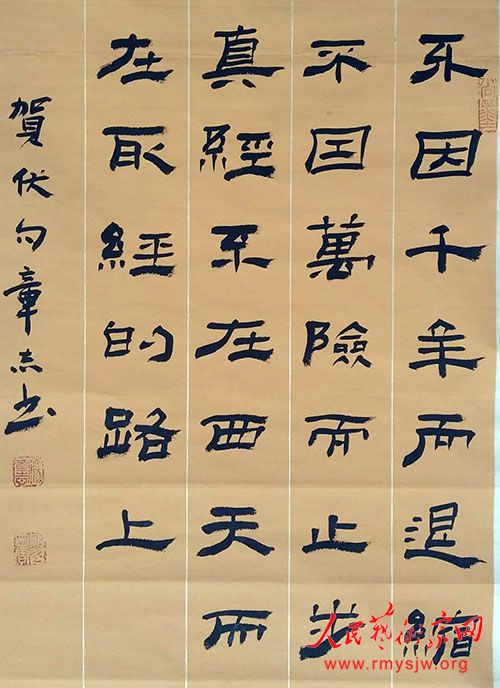 不因千辛而退縮
不因萬險而止步
真經不在西天而
在取經的路上
賀伏句章志书
人民藝術家网
www.rmysjw.org